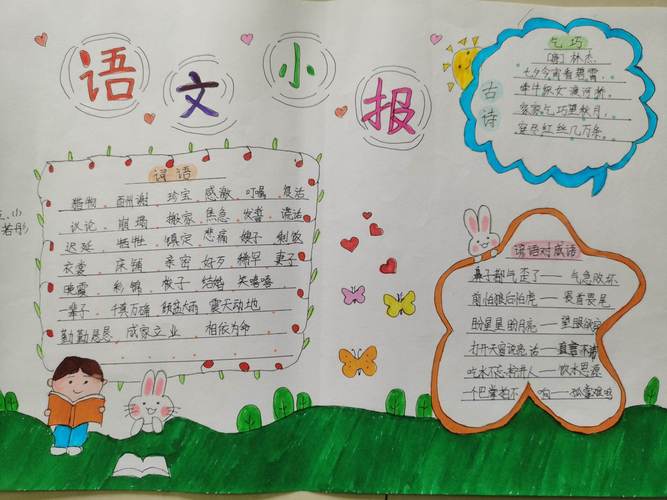 语文小报
词语
猎物 酬谢 珍宝 感激 叮嘱 复活
议论 崩塌 搬家 焦急 发誓 谎话
迟延 牺牲 镇定 悲痛 嫂子 剩饭
衣裳 床铺 亲密 好歹 稍早 妻子
晚霞 彩锦 梭子 结婚 笑嘻嘻
一辈子 千真万确 倾盆大雨 震天动地
勤勤恳恳 成家立业 相依为命
古诗
乞巧
[唐] 林杰
七夕今宵看碧霄,
牵牛织女渡河桥。
家家乞巧望秋月,
穿尽红丝几万条。
谚语对成语
鼻子都气歪了——气急败坏
前怕狼后怕虎——畏首畏尾
盼星星盼月亮——望眼欲穿
打开天窗说亮话——直言不讳
吃水不忘挖井人——饮水思源
一个巴掌拍不响——孤掌难鸣